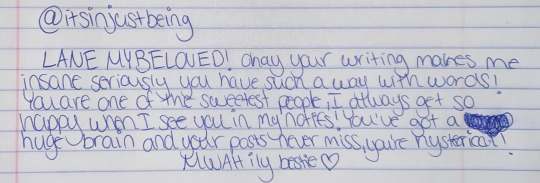 @itsinjustbeing
LANE MY BELOVED! okay your writing makes me
insane seriously you have such a way with words!
You are one of the sweetest people, I always get so
happy when I see you in my notifs! You've got a
huge brain and your posts never miss, you're hysterical!
MWAH ily bestie ♡